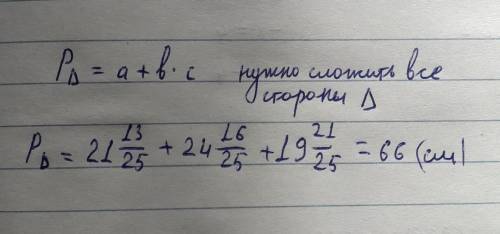 P∆ = a + b · c нужно сложить все
стороны ∆
P∆ = 21 13/25 + 24 16/25 + 19 21/25 = 66 (см)